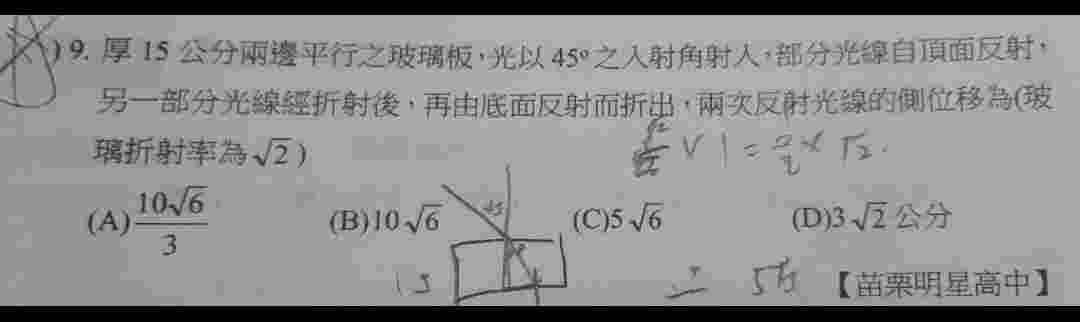 )9. 厚 15 公分兩邊平行之玻璃板，光以 45° 之入射角射入，部分光線自頂面反射，
另一部分光線經折射後，再由底面反射而折出，兩次反射光線的側位移為(玻
璃折射率為 √2 )
1 = × √2 .
(A) 10√6/3 (B)10 √6 (C)5 √6 (D)3 √2 公分
45
15
【苗栗明星高中】